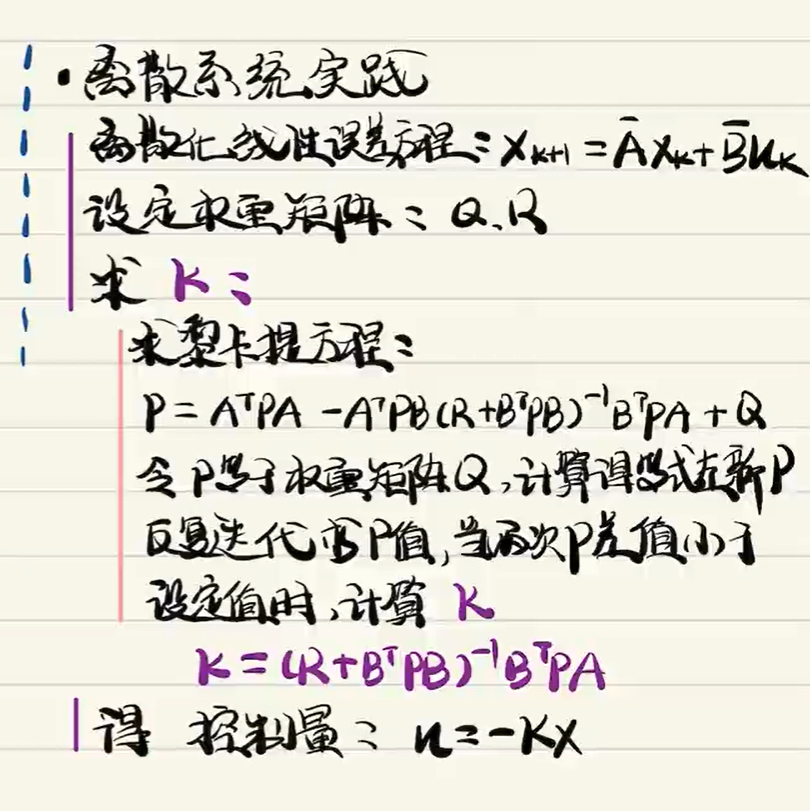 ·离散系统实践
离散化线性误差方程: X_{k+1} = ĀX_k + B̄u_k
设定权重矩阵: Q、R
求 K:
求黎卡提方程:
P = AᵀPA - AᵀPB(R+BᵀPB)⁻¹BᵀPA + Q
令P等于权重矩阵Q,计算得等式左新P
反复迭代P值,当两次P差值小于
设定值时,计算 K
K = (R+BᵀPB)⁻¹BᵀPA
得 控制量: u=-Kx